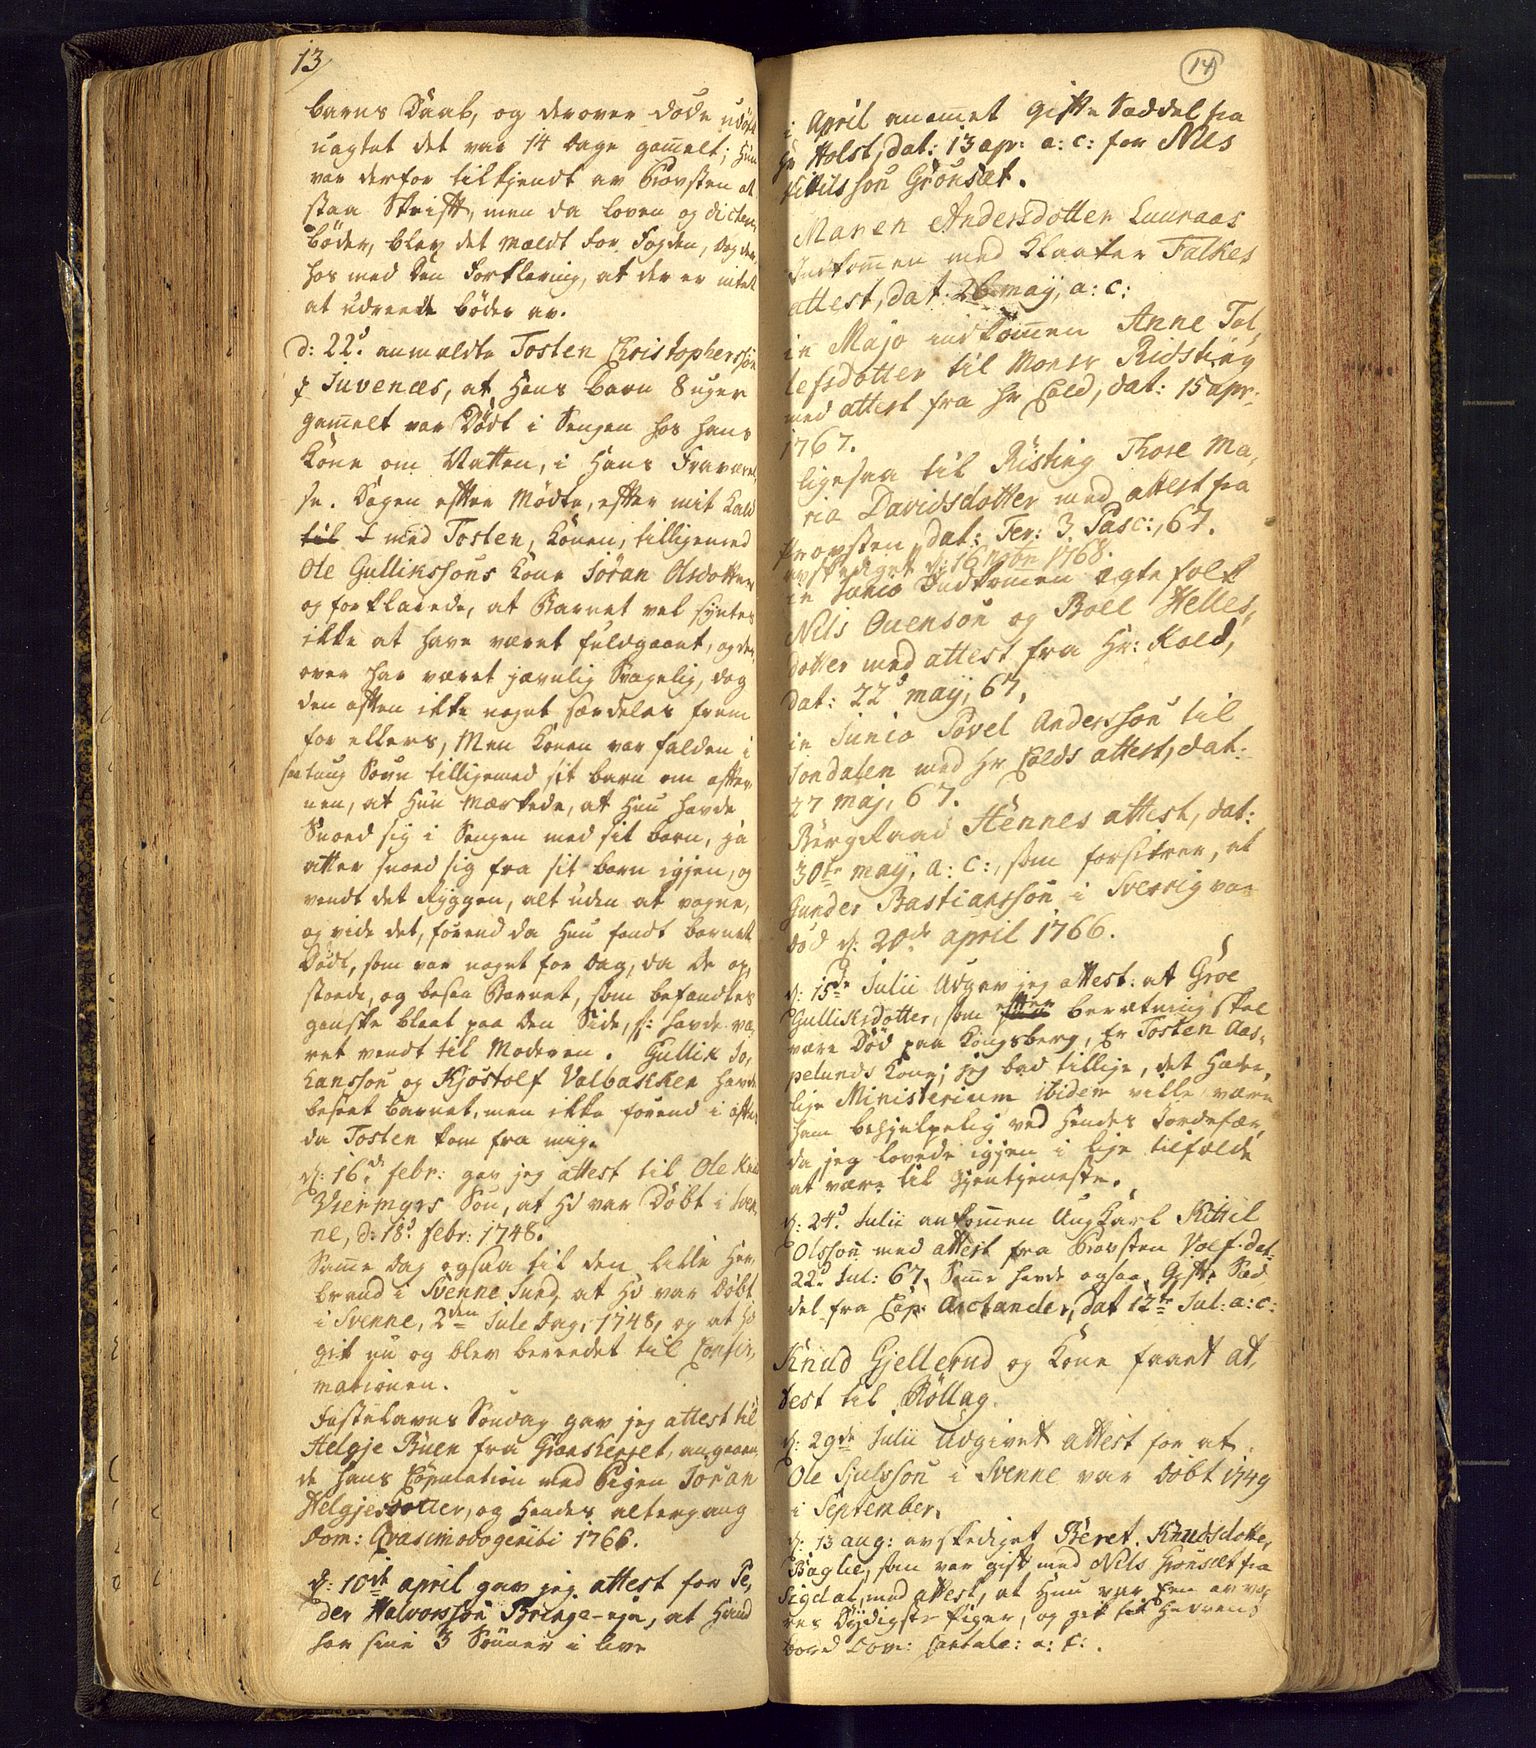 13
barns Daab, og derover døde udøbt
uagtet det var 14 dage gammelt; Hun
var derfor tilkjendt av Provsten at
staa Skrift, men da loven og dicterer
bøder, blev det meldt for Fogden, dog der
hos med den forklaring, at der er intet
at udreede bøder av.
d: 22d. anmeldte Tosten Christophersøn
Juvenæs, at Hans barn 8 uger
gammelt var Dødt i Sengen hos hans
Kone om Natten, i Hans Fraværel,
se. Dagen efter Mødte, efter mit Kald
med Tosten, Konen, tilligemed
Ole Gullikssons Kone Jøran Olsdotter
og forklarede, at Barnet vel syntes
ikke at have været fuldgaaet, og der,
over har været jævnlig Svagelig, dog
den aften ikke noget særdeles frem
for ellers, Men Konen var falden i
saa tung Søvn tilligemed sit barn om afte
nen, at Hun mærkede, at Hun havde
Snoed sig i Sengen med sit barn, ja
atter snoed sig fra sit barn igjen, og
vendt det Ryggen, alt uden at vogne,
og vide det, førend da Hun fandt barnet
Dødt, som var noget for dag, da De op,
stoede, og besaa Barnet, som befandtes
ganske blaat paa den Side, havde va,
ret vendt til Moderen. Gullik Jo,
hansson og Kjøstolf Valbakken havde
beseet barnet, men ikke førend i efter
da Tosten kom fra mig.
d: 16d. febr: gav jeg attest til Ole
Vienmyrs Søn, at Hd var Døbt i Sven
ne, d: 18d febr: 1748.
Samme dag ogsaa til den lille Her,
brand i Svenne Sund, at Hd var Døbt
i Svenne, 2den Jule dag, 1748, og at Hd
gik nu og blev bereedet til Confir,
mationen.
Fastelavns Søndag gav jeg attest til
Helgje Buen fra Grønskeijet, angaaen,
de hans Copulation med Pigen Joran
Helgjesdotter, og hendes altergang
Dom: Qvasimodogeniti 1766.
d: 10de april gav jeg attest for Pe,
der Halvorssøn Bringe-eje, at Hand
har sine 3 Sønner i live
14
i April anammet gifte Saddel fra
Hr Holst, dat: 13 apr: a: c: for Nils
Kittilsson Grønsæt.
Maren Andersdotter Lauraas
Indkommen med Klocker Falkes
attest, dat: 26 maij, a: c:
in Majo indkommen Anne Tol,
lefsdotter til Monsr Ridsting
med attest fra Hr Cold, dat: 15 apr:
1767.
ligesaa til Risting Thore Ma,
ria Davidsdotter med attest fra
Provsten, dat: Fer: 3. Pasc:, 67.
avskediget d: 16 novbr 1768.
in Junio Indkommen egtefolk
Nils Ouenson og Boel Helles,
dotter med attest fra Hr: Kold,
dat: 22d maij, 67,
in Junio Povel Andersson til
Jondalen med Hr Colds attest, dat:
27 maj, 67.
Bergraad Hennes attest, dat:
30te maij, a: c:, som forsikrer, at
Gunder Bastiansson i Sverrig var
død d: 20de april 1766.
d: 15de Julii Udgav jeg attest: at Groe
Gulliksdotter, som efter berætning skal
være Død paa Kongsberg, Er Tosten Aas,
pelunds Kone; jeg bad tillige, det Hæder,
lige Ministerium ibidem ville være
ham behjelpelig ved Hendes Jordefær,
da jeg lovede igjen i lige tilfælde
at være til gjentjeneste.
d: 24d. Julii ankommen Ung Karl Kittil
Olsson med attest fra Provsten Volf. dat:
22d Jul: 67. Samme havde ogsaa Gifte Sed
del fra Cap: Arctander, dat 12te Jul: a: c:
Knud Gjellerud og Kone faaet At,
test til Rollag.
d: 29de Julii Udgivet attest for at
Ole Sjulsson i Svenne var døbt 1749
i September.
d: 13 aug: avskediget Beret Knudsdotter
Baglie, som var gift med Nils Grønsæt fra
Sigdal, med attest, at Hun var Een av vo,
res Dydigste piger, og gik til Herrens
bord Dom: Cantate: a: c:.